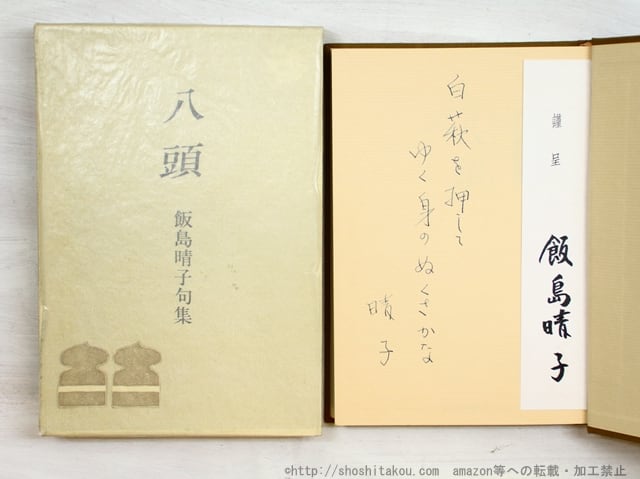 八頭
飯島晴子句集
白萩を押して
ゆく身のぬくさかな
晴子
謹呈
飯島晴子
©http://shoshitakou.com　amazon等への転載・加工禁止